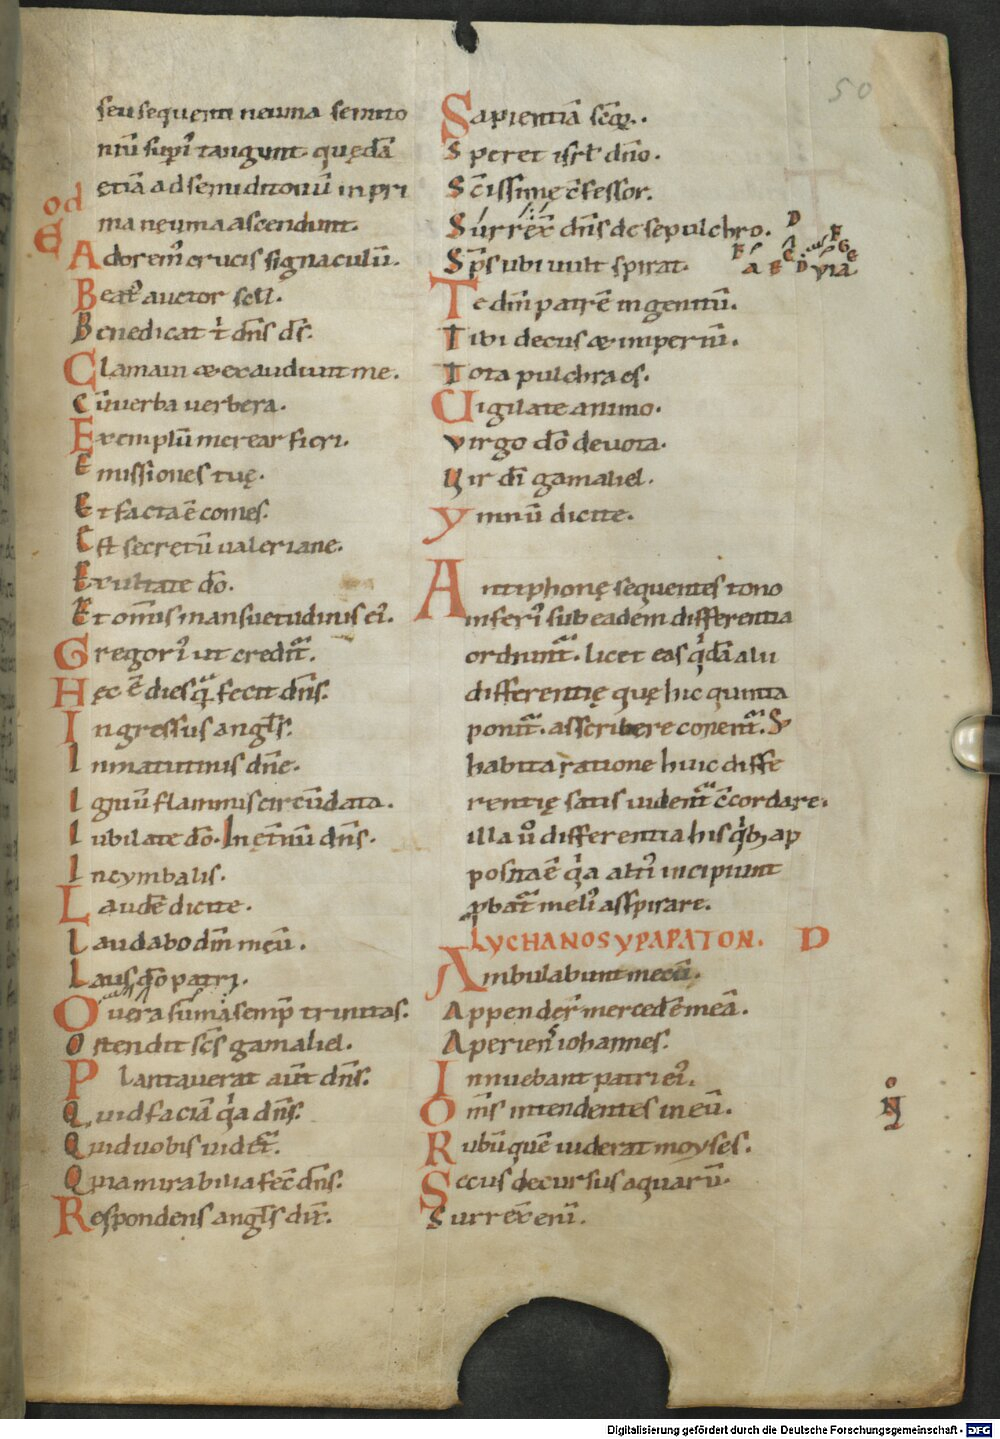 50
seu sequenti neuma semito
niū supi᷒ tangunt. quędā
etiā ad semiditonū in pri
ma neuma ascendunt.
od
E
Adorem᷒ crucis signaculū.
Beat᷒ auctor scl̄i.
Benedicat t̄ dn̄s ds̄.
Clamaui & exaudiuit me.
Cū uerba uerbera.
Exemplū merear fieri.
Emissiones tuę.
Et facta ē comes.
Est secretū ualeriane.
Exultate dō.
Et om̄is mansuetudinis ei᷒.
Gregori᷒ ut credit̄.
Hęc ē dies quā fecit dn̄s.
Ingressus angl̄s.
In matutinis dn̄e.
Ignitū flammis circūdata.
Iubilate dō. In ęt̄nū dn̄s.
In cymbalis.
Laudē dicite.
Laudabo dm̄ meū.
Laus dō patri.
O uera sūma semp̄ trinitas.
Ostendit sc̄s gamaliel.
Plantauerat aūt dn̄s.
Quid faciā qa dn̄s.
Quid uobis uidet̄.
Quia mirabilia fec̄ dn̄s.
Respondens angl̄s dix̄.
Sapientiā
Speret isrl̄ dn̄o.
Sc̄issimę c̄fessor.
Surrex̄ dn̄s de sepulchro.
Sp̄s ubi uult spirat.
Te dm̄ patrē ingenitū.
Tibi decus & imperiū.
Tota pulchra es.
Uigilate animo.
Virgo dō deuota.
Vir dī gamaliel.
Ymnū dicite.
Antiphonę sequentes tono
inferi᷒ sub eadem differentia
ordinant̄. licet eas qdā alii
differentię quę hic quinta
ponit̄. asscribere conent̄. S;
habita ratione huic diffe
rentię satis uident̄ c̄cordare.
illa ū differentia his qb; ap
posita ē qa alti᷒ incipiunt
ꝓbat̄ meli᷒ asspirare.
LYCHANOS YPAPATON. D
Ambulabunt mecū.
Appender̄ mercedē meā.
Aperien᷒ iohannes.
Innuebant patri ei᷒.
Om̄s intendentes in eū.
Rubū quē uiderat moyses.
Secus decursus aquarū.
Surrex̄ enī.
Digitalisierung gefördert durch die Deutsche Forschungsgemeinschaft - DFG